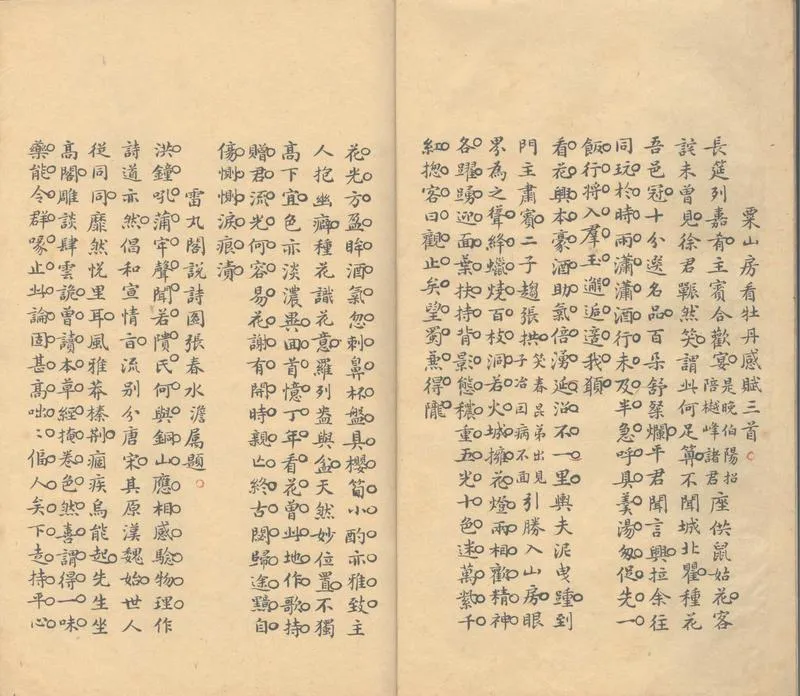 栗山房看牡丹感賦三首
長筵列嘉肴主賓合歡宴是晚伯陽招陪樾峰諸君座供鼠姑花客
談未曾見徐君囅然笑謂此何足算不聞城北瞿種花
吾邑冠十分選名品百朵舒粲爛平君聞言興拉余往
同玩於時雨瀟瀟酒行未及半急呼具羹湯匆促先一
飯行將入羣玉邂逅適我願
看花興本豪酒助氣倍湧沿不一里輿夫泥曳踵到
門主肅賓二子趨張拱笑春昆弟出見子冶因病不面引勝入山房眼
界為之聳絳蠟燒百枝洞若火城擁花燈兩相歡精神
各躍踴迎面葉扶持背影態穠重五光十色迷萬紫千
紅揔客曰觀止矣望蜀焉得隴
花光方盈眸酒氣忽刺鼻杯盤具櫻筍小酌亦雅致主
人抱幽癖種花識花意羅列盎與盆天然妙位置不獨
高下宜色亦淡濃異回首憶丁年看花曾此地作歌持
贈君流光何容易花謝有開時親亡終古閟歸途黯自
傷惻惻淚痕漬
雷丸閣說詩圖張春水澹屬題
洪鐘吼蒲牢聲聞若隤氏何與銅山應相感驗物理作
詩道亦然倡和宣情言流別分唐宋其原漢魏始世人
從同同靡然悅里耳風雅莽榛荆痼疾烏能起先生坐
高閣雕談肆雲詭曾讀本草經掩卷色然喜謂得一味
藥能令群喙止此論固甚高咄咄傖人矣下走持平心